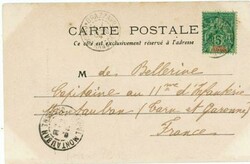 CARTE POSTALE
Ce côté est exclusivement réservé à l'adresse
M de Bellerive
Capitaine au 11me d'Infanterie
Montauban (Tarn et Garonne)
France
MONTAUBAN
5